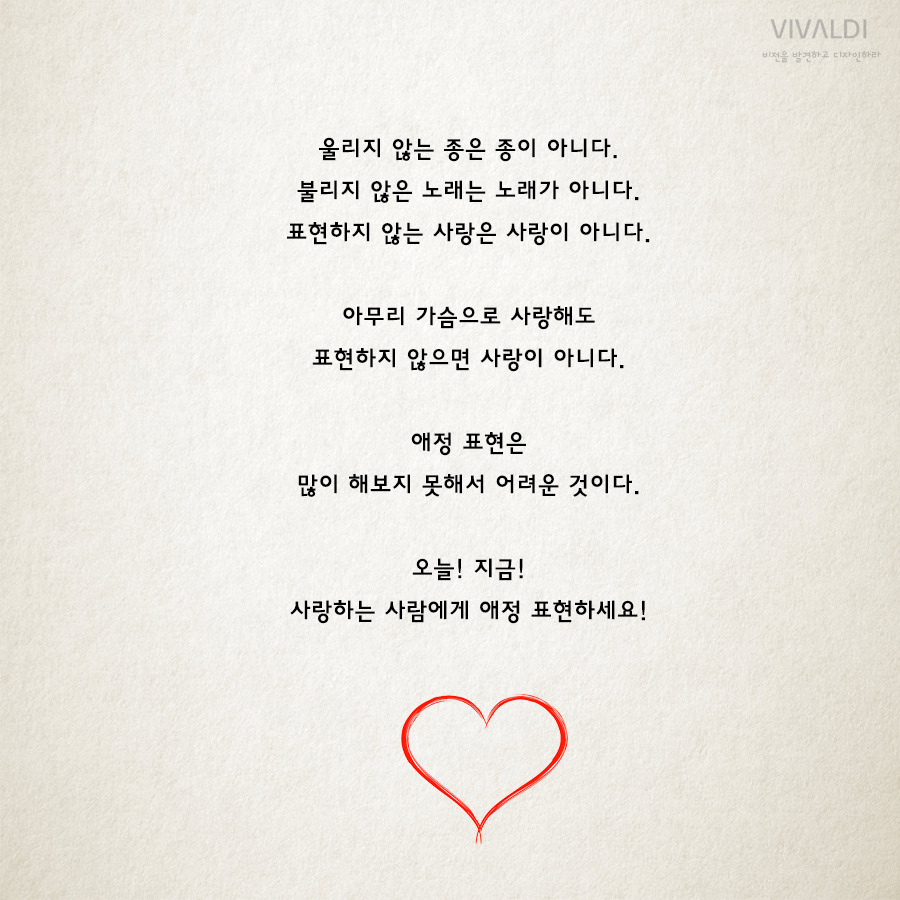 VIVALDI
비전을 발견하고 디자인하라
울리지 않는 종은 종이 아니다.
불리지 않은 노래는 노래가 아니다.
표현하지 않는 사랑은 사랑이 아니다.
아무리 가슴으로 사랑해도
표현하지 않으면 사랑이 아니다.
애정 표현은
많이 해보지 못해서 어려운 것이다.
오늘! 지금!
사랑하는 사람에게 애정 표현하세요!